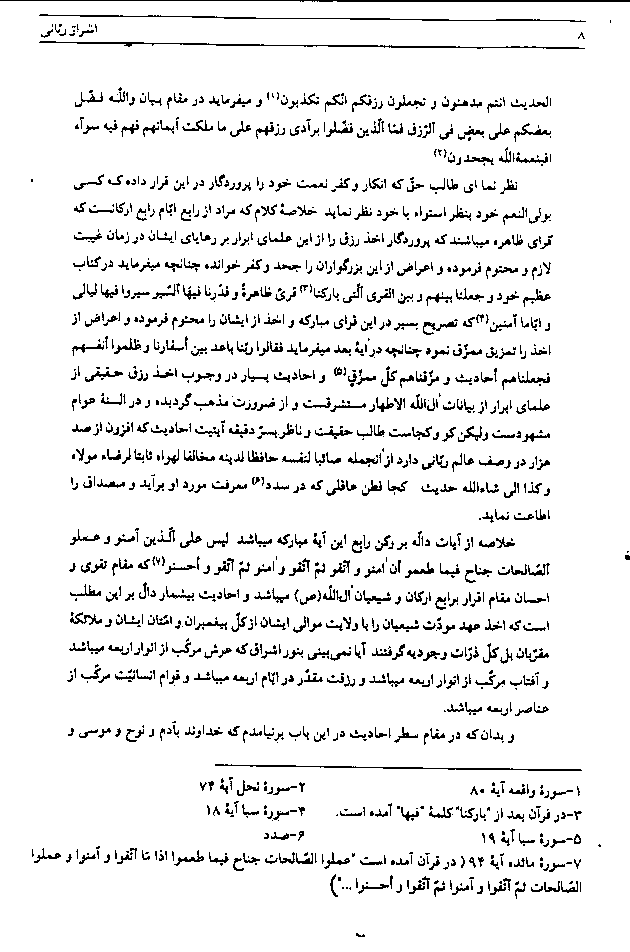 ۸
اشراق ربّانی
الحدیث انتم مدهنون و تجعلون رزقکم انّکم تکذبون(۱) و میفرماید در مقام بیان واللّه فضّل
بعضکم علی بعض فی الرّزق فمّا الّذین فضّلوا برآدی رزقهم علی ما ملکت أیمانهم فهم فیه سوآء
افبنعمةاللّه یجحدون(۲)
نظر نما ای طالب حقّ که انکار و کفر نعمت خود را پروردگار در این قرار داده که کسی
بولی‌النعم خود بنظر استواء با خود نظر نماید خلاصۀ کلام که مراد از رابع ایّام رابع ارکانست که
قرای ظاهره میباشند که پروردگار اخذ رزق را از این علمای ابرار بر رعایای ایشان در زمان غیبت
لازم و محتوم فرموده و اعراض از این بزرگواران را جحد و کفر خوانده چنانچه میفرماید در کتاب
عظیم خود و جعلنا بینهم و بین القری الّتی بارکنا(۳) قریً ظاهرةً و قدّرنا فیهَا السّیر سیروا فیها لیالی
و ایّاماً آمنین(۴) که تصریح بسیر در این قرای مبارکه و اخذ از ایشان را محتوم فرموده و اعراض از
اخذ را تمزیق ممزّق نموده چنانچه در آیۀ بعد میفرماید فقالوا ربّنا باعد بین أسفارنا و ظلموا أنفسهم
فجعلناهم أحادیث و مزّقناهم کلّ ممزّق(۵) و احادیث بسیار در وجوب اخذ رزق حقیقی از
علمای ابرار از بیانات آل‌اللّه الاطهار مستشرقست و از ضرورت مذهب گردیده و در السنۀ عوام
مشهودست ولیکن کو و کجاست طالب حقیقت و ناظر بسرّ دقیقه آیتیت احادیث که افزون از صد
هزار در وصف عالم ربّانی دارد از آنجمله صائبا لنفسه حافظا لدینه مخالفا لهواه ثابتا لرضاء مولاه
و کذا الی شاءاللّه حدیث کجا فطن عاقلی که در سدد(۶) معرفت مورد او برآید و مصداق را
اطاعت نماید.
خلاصه از آیات دالّه بر رکن رابع این آیۀ مبارکه میباشد لیس علی الّذین آمنو و عملو
الصّالحات جناح فیما طعمو أن آمنو و آتّقو ثمّ آتّقو و آمنو ثمّ آتّقو و أحسنو(۷) که مقام تقوی و
احسان مقام اقرار برابع ارکان و شیعیان آل‌اللّه(ص) میباشد و احادیث بیشمار دالّ بر این مطلب
است که اخذ عهد مودّت شیعیان را با ولایت موالی ایشان از کلّ پیغمبران و امّتان ایشان و ملائکۀ
مقرّبان بل کلّ ذرّات وجودیه گرفتند آیا نمی‌بینی بنور اشراق که عرش مرکّب از انوار اربعه میباشد
و آفتاب مرکّب از انوار اربعه میباشد و رزقت مقدّر در ایّام اربعه میباشد و قوام انسانیّت مرکّب از
عناصر اربعه میباشد.
و بدان که در مقام سطر احادیث در این باب برنیامدم که خداوند بآدم و نوح و موسی و
۱-سورۀ واقعه آیۀ ۸۰ ۲-سورۀ نحل آیۀ ۷۴
۳-در قرآن بعد از "بارکنا" کلمۀ "فیها" آمده است. ۴-سورۀ سبا آیۀ ۱۸
۵-سورۀ سبا آیۀ ۱۹ ۶-صدد
۷-سورۀ مائده آیۀ ۹۴ ( در قرآن آمده است "عملوا الصّالحات جناح فیما طعموا اذا مّا آتّقوا و آمنوا و عملوا
الصّالحات ثمّ آتّقوا و آمنوا ثمّ آتّقوا و أحسنوا ...")